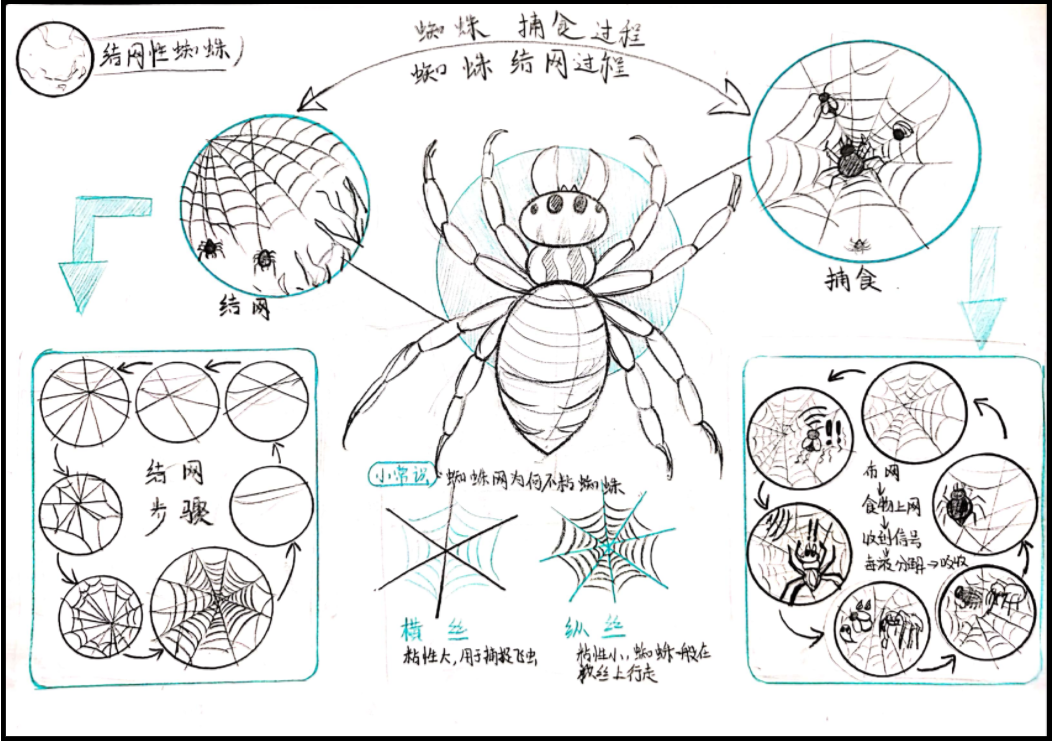 结网性蜘蛛
蜘蛛 捕食过程
蜘蛛 结网过程
结网
捕食
结网
步骤
小常识
蜘蛛网为何不粘蜘蛛
横丝
粘性大,用于捕捉飞虫
纵丝
粘性小,蜘蛛一般在
丝上行走
布网
食物上网
收到信号
毒液分解→吸收